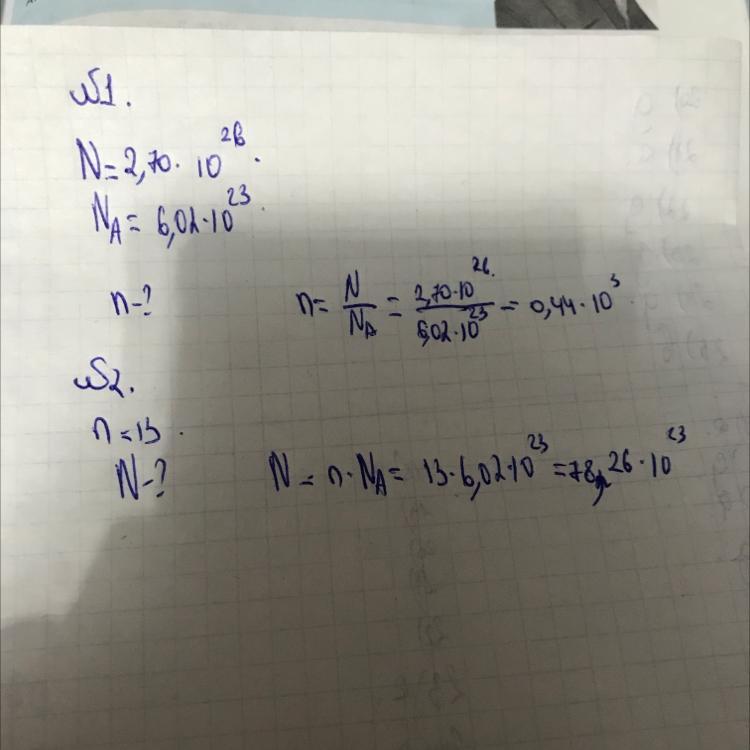 №1.
N = 2,70 · 10²⁶.
Nₐ = 6,02 · 10²³.
n - ? n = N/Nₐ = 2,70·10²⁶/6,02·10²³ = 0,44 · 10³
№2.
n = 13.
N - ? N = n · Nₐ = 13 · 6,02 · 10²³ = 78,26 · 10²³